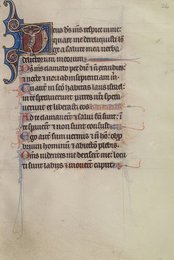 eus ds ms respice in me
quare me dereliquisti lon
ge a salute mea verba
delictorum meorum
Ds ms clamabo per diem et ñ exaudies
et nocte et non ad insipientiam m
Tu autem in sco habitas laus israel
In te speraverunt patres nri spera
verunt et liberasti eos
Ad te clamaverunt et salvi sunt in
te speraverunt et non sunt confusi
Ego autem sum vermis et ñ homo op
brobrium hominum et abiectio plebis
Oms videntes me deriserunt me locu
ti sunt labiis et moverunt caput